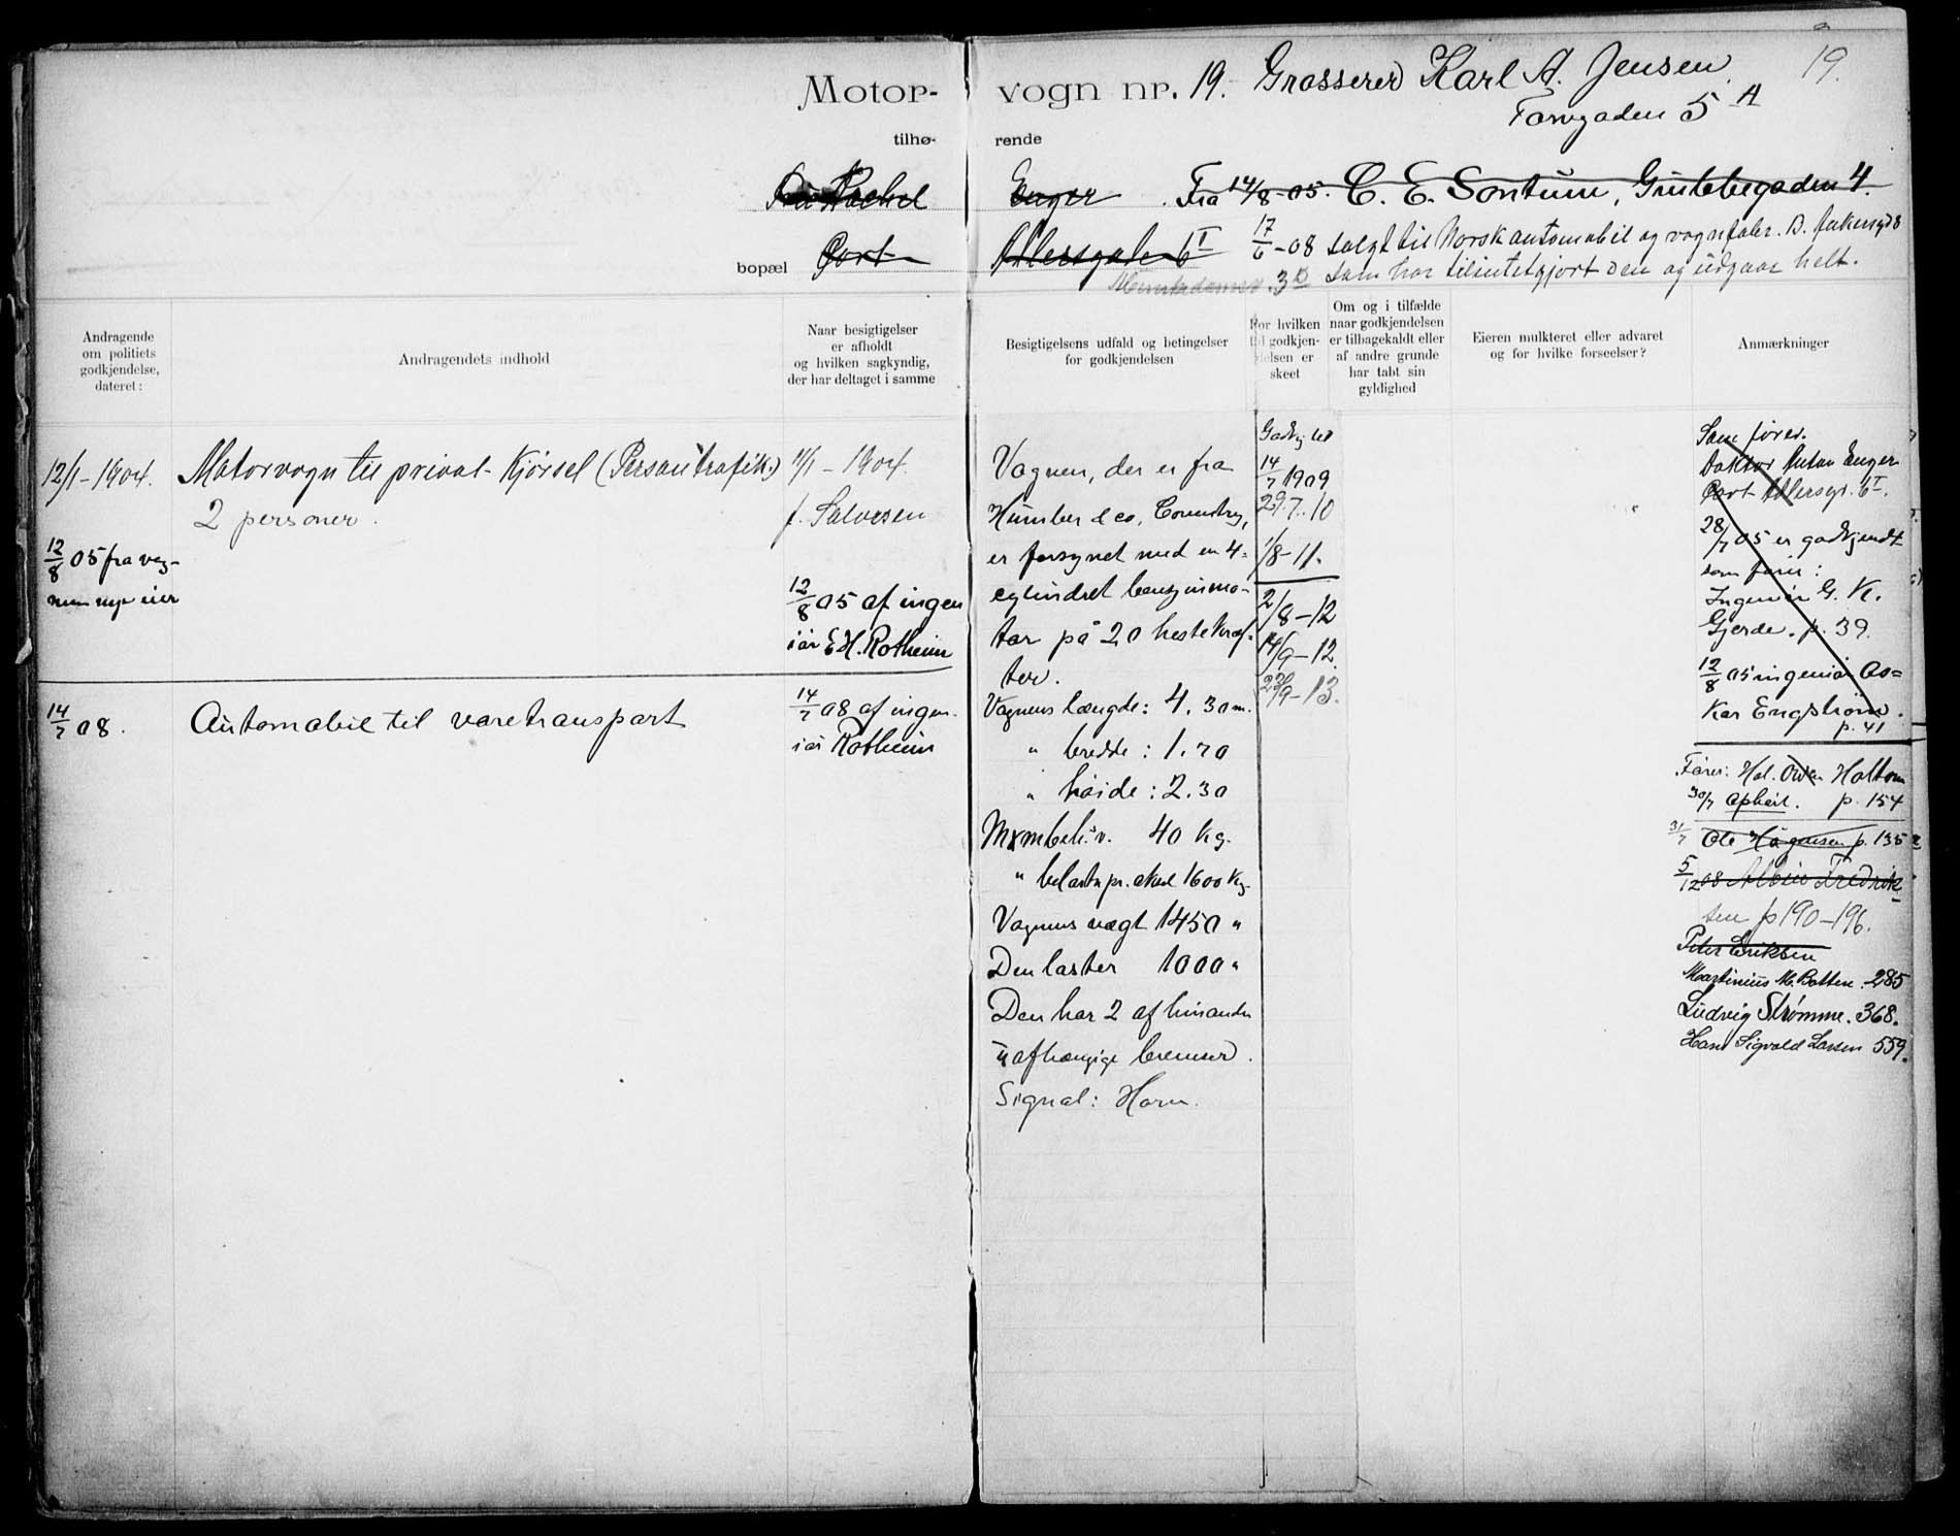 Motor-vogn nr. 19. Grosserer Karl A. Jensen 19.
Torvgaden 5 A
tilhørende
Rachel Enger Fra 14/8-05. C. E. Sontum,
17/6-08 solgt til Norsk automobil og vognfabr.
bopæl Cort Adlersgaden 6 I
3 som har tilintetgjort den og udgaar helt.
Andragende
om politiets
godkjendelse,
dateret:
Andragendets indhold
Naar besigtigelser
er afholdt
og hvilken sagkyndig,
der har deltaget i samme
Besigtigelsens udfald og betingelser
for godkjendelsen
For hvilken
tid godkjen-
delsen er
skeet
Om og i tilfælde
naar godkjendelsen
er tilbagekaldt eller
af andre grunde
har tabt sin
gyldighed
Eieren mulkteret eller advaret
og for hvilke forseelser?
Anmærkninger
12/1-1904.
12/8 05 fra vog-
nens nye eier
14/7 08.
Motorvogn til privat Kjørsel (Persontrafik.)
2 personer.
Automobil til varetransport
11/1-1904.
f. Salvesen
12/8 05 af ingen
iør E.H. Rotheim
14/7 08 af ingen-
iør Rotheim
Vognen, der er fra
Humber & co, Coventry,
er forsynet med en 4-
cylindret benzinmo-
tor på 20 hestekræf-
ter.
Vognens længde: 4.30 m.
" bredde: 1.70
" høide: 2.30
40 kg.
" belastn pr. aksel 1600 kg.
Vognens vægt 1450 "
Den laster 1000 "
Den har 2 af hinanden
uafhængige bremser.
Signal: Horn.
Godkj. til
14/7 1909
29.7.10
1/8-11.
2/8-12
14/9-12.
9-13.
Som fører.
Doktor Anton Enger
Cort Adlersg. 6 I.
28/7 05 er godkjendt
som fører:
Ingeniør G. K.
Gjerde. p. 39.
12/8 05 ingeniør Os-
kar Engstrøm.
p. 41
Fører: Hal. Owen Holtom
30/7 ophørt. p. 154
31/7 Ole Hågensen p. 135
5/12 08 Albin Fredrik
sen p 190-196.
Peter Eriksen
Martinius M. Botten. 285
Ludvig Strømme. 368.
Hans Sigvald Larsen 559.